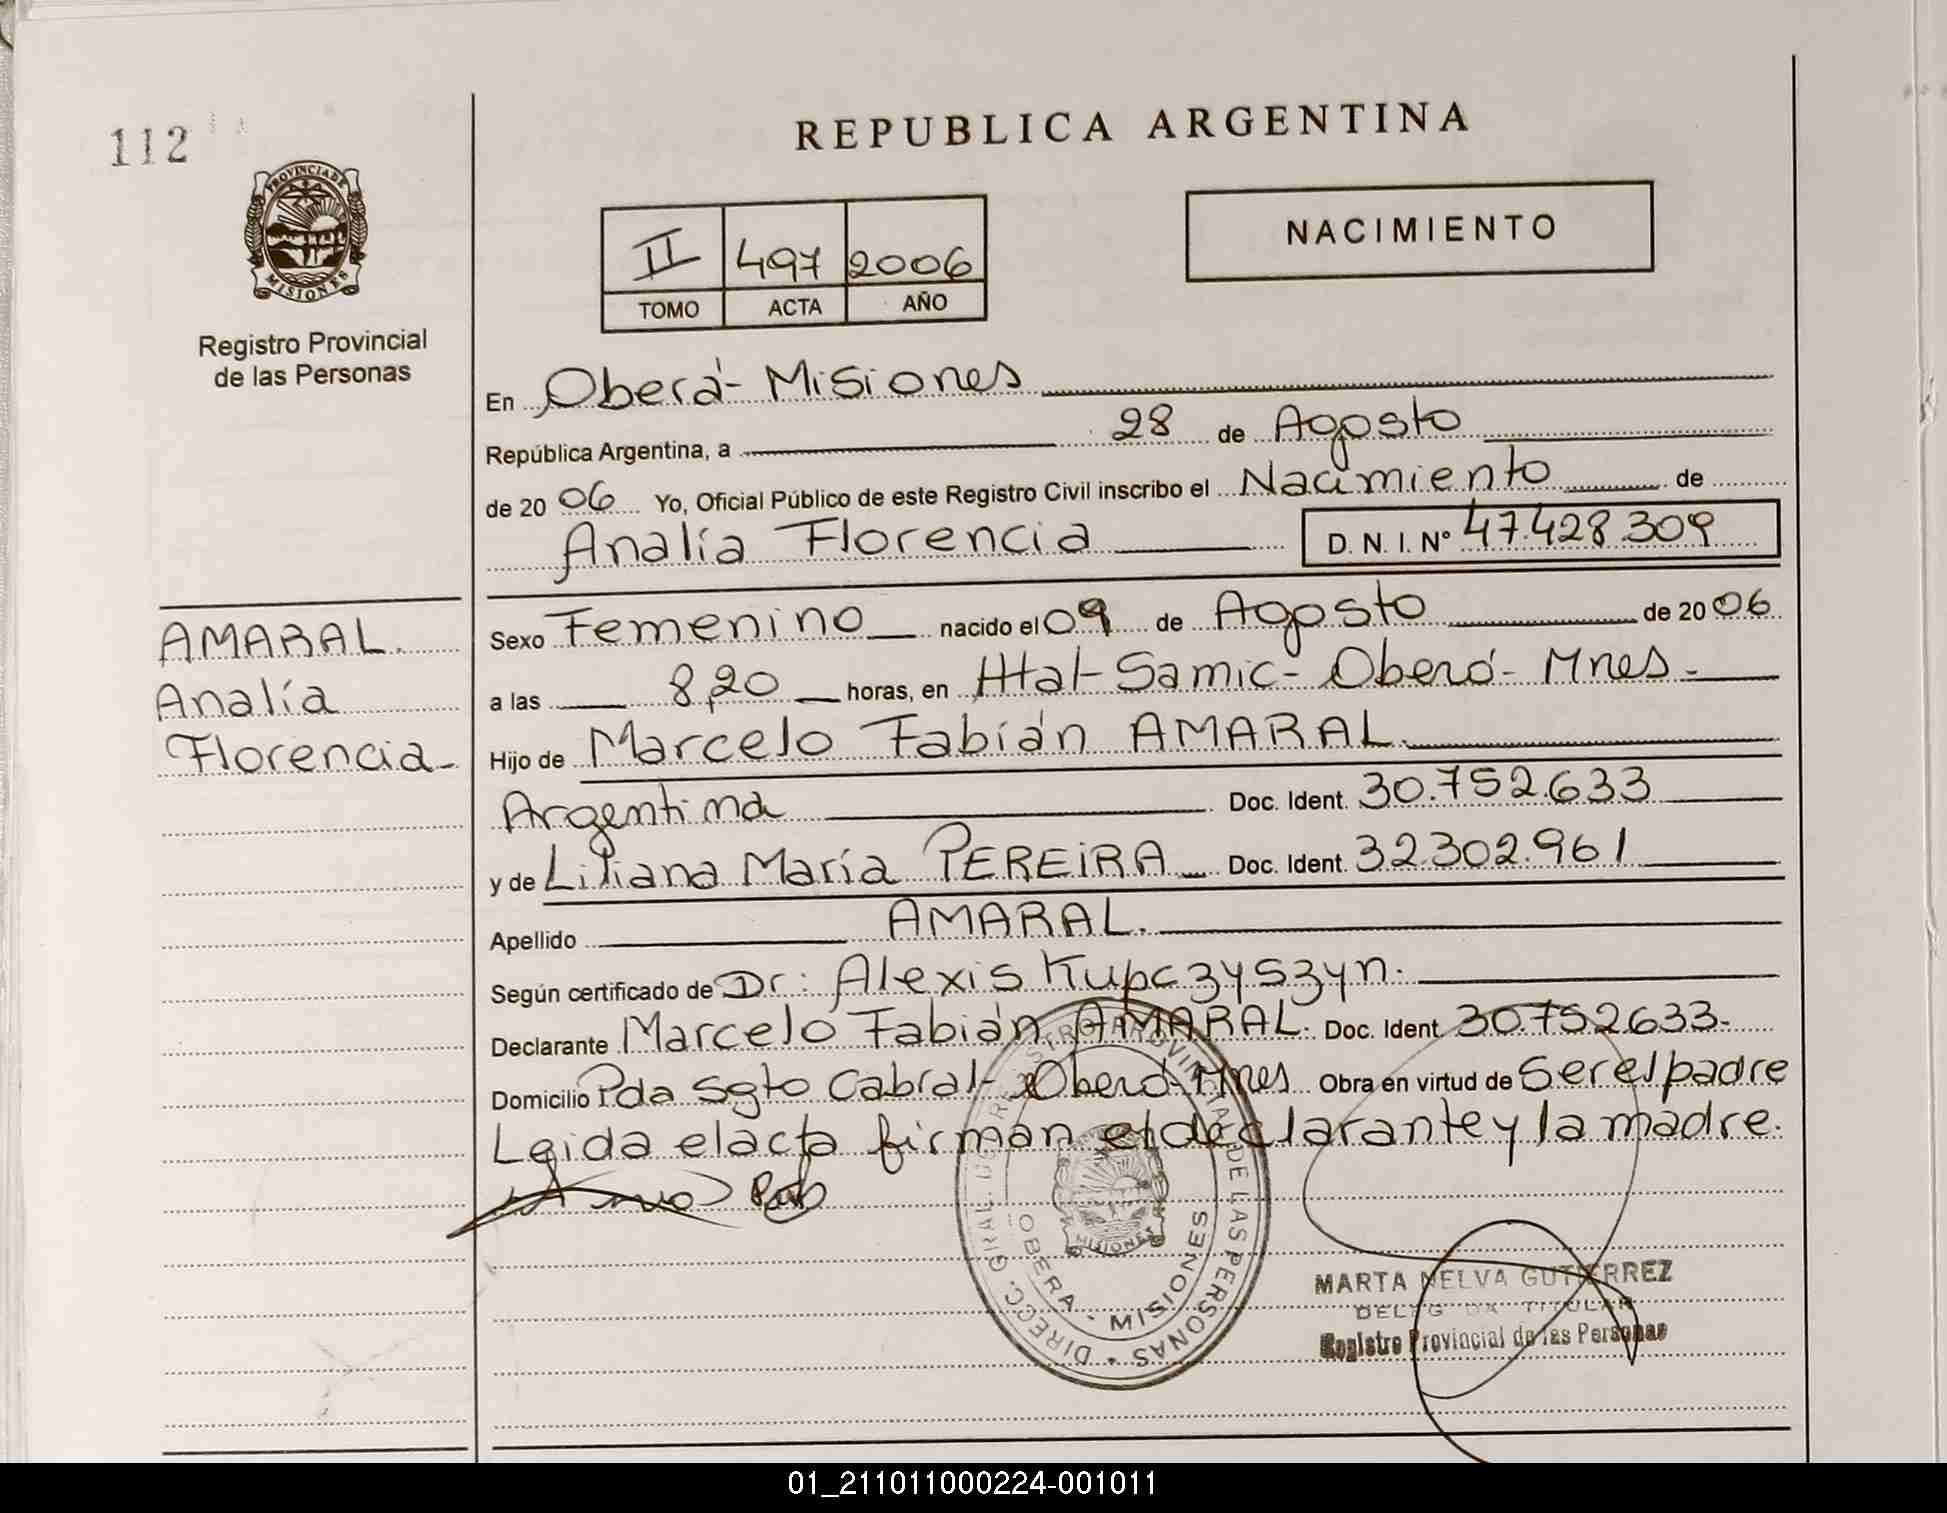 112
REPUBLICA ARGENTINA
PROVINCIA DE
MISIONES
Registro Provincial
de las Personas
II 497 2006
TOMO ACTA AÑO
NACIMIENTO
En Oberá - Misiones
República Argentina, a 28 de Agosto
de 20 06 Yo, Oficial Público de este Registro Civil inscribo el Nacimiento de
Analía Florencia D. N. I. Nº 47.428.309
AMARAL.
Analía
Florencia-
Sexo Femenino nacido el 09 de Agosto de 20 06
a las 8,20 horas, en Htal-Samic- Oberá- Mnes.-
Hijo de Marcelo Fabián AMARAL.
Argentina Doc. Ident. 30.752.633
y de Liliana María PEREIRA Doc. Ident. 32.302.961
Apellido AMARAL.
Según certificado de Dr: Alexis Kupczyszyn.
Declarante Marcelo Fabián AMARAL. Doc. Ident. 30.752.633.
Domicilio Pda Sgto Cabral- Oberá-Mnes Obra en virtud de Ser el padre
Leida el acta firman el declarante y la madre.
DIRECC. GRAL. DE REGISTRO PROVINCIAL DE LAS PERSONAS
OBERA - MISIONES
MISIONES
MARTA NELVA GUTIERREZ
TITULAR
Registro Provincial de las Personas
01_211011000224-001011